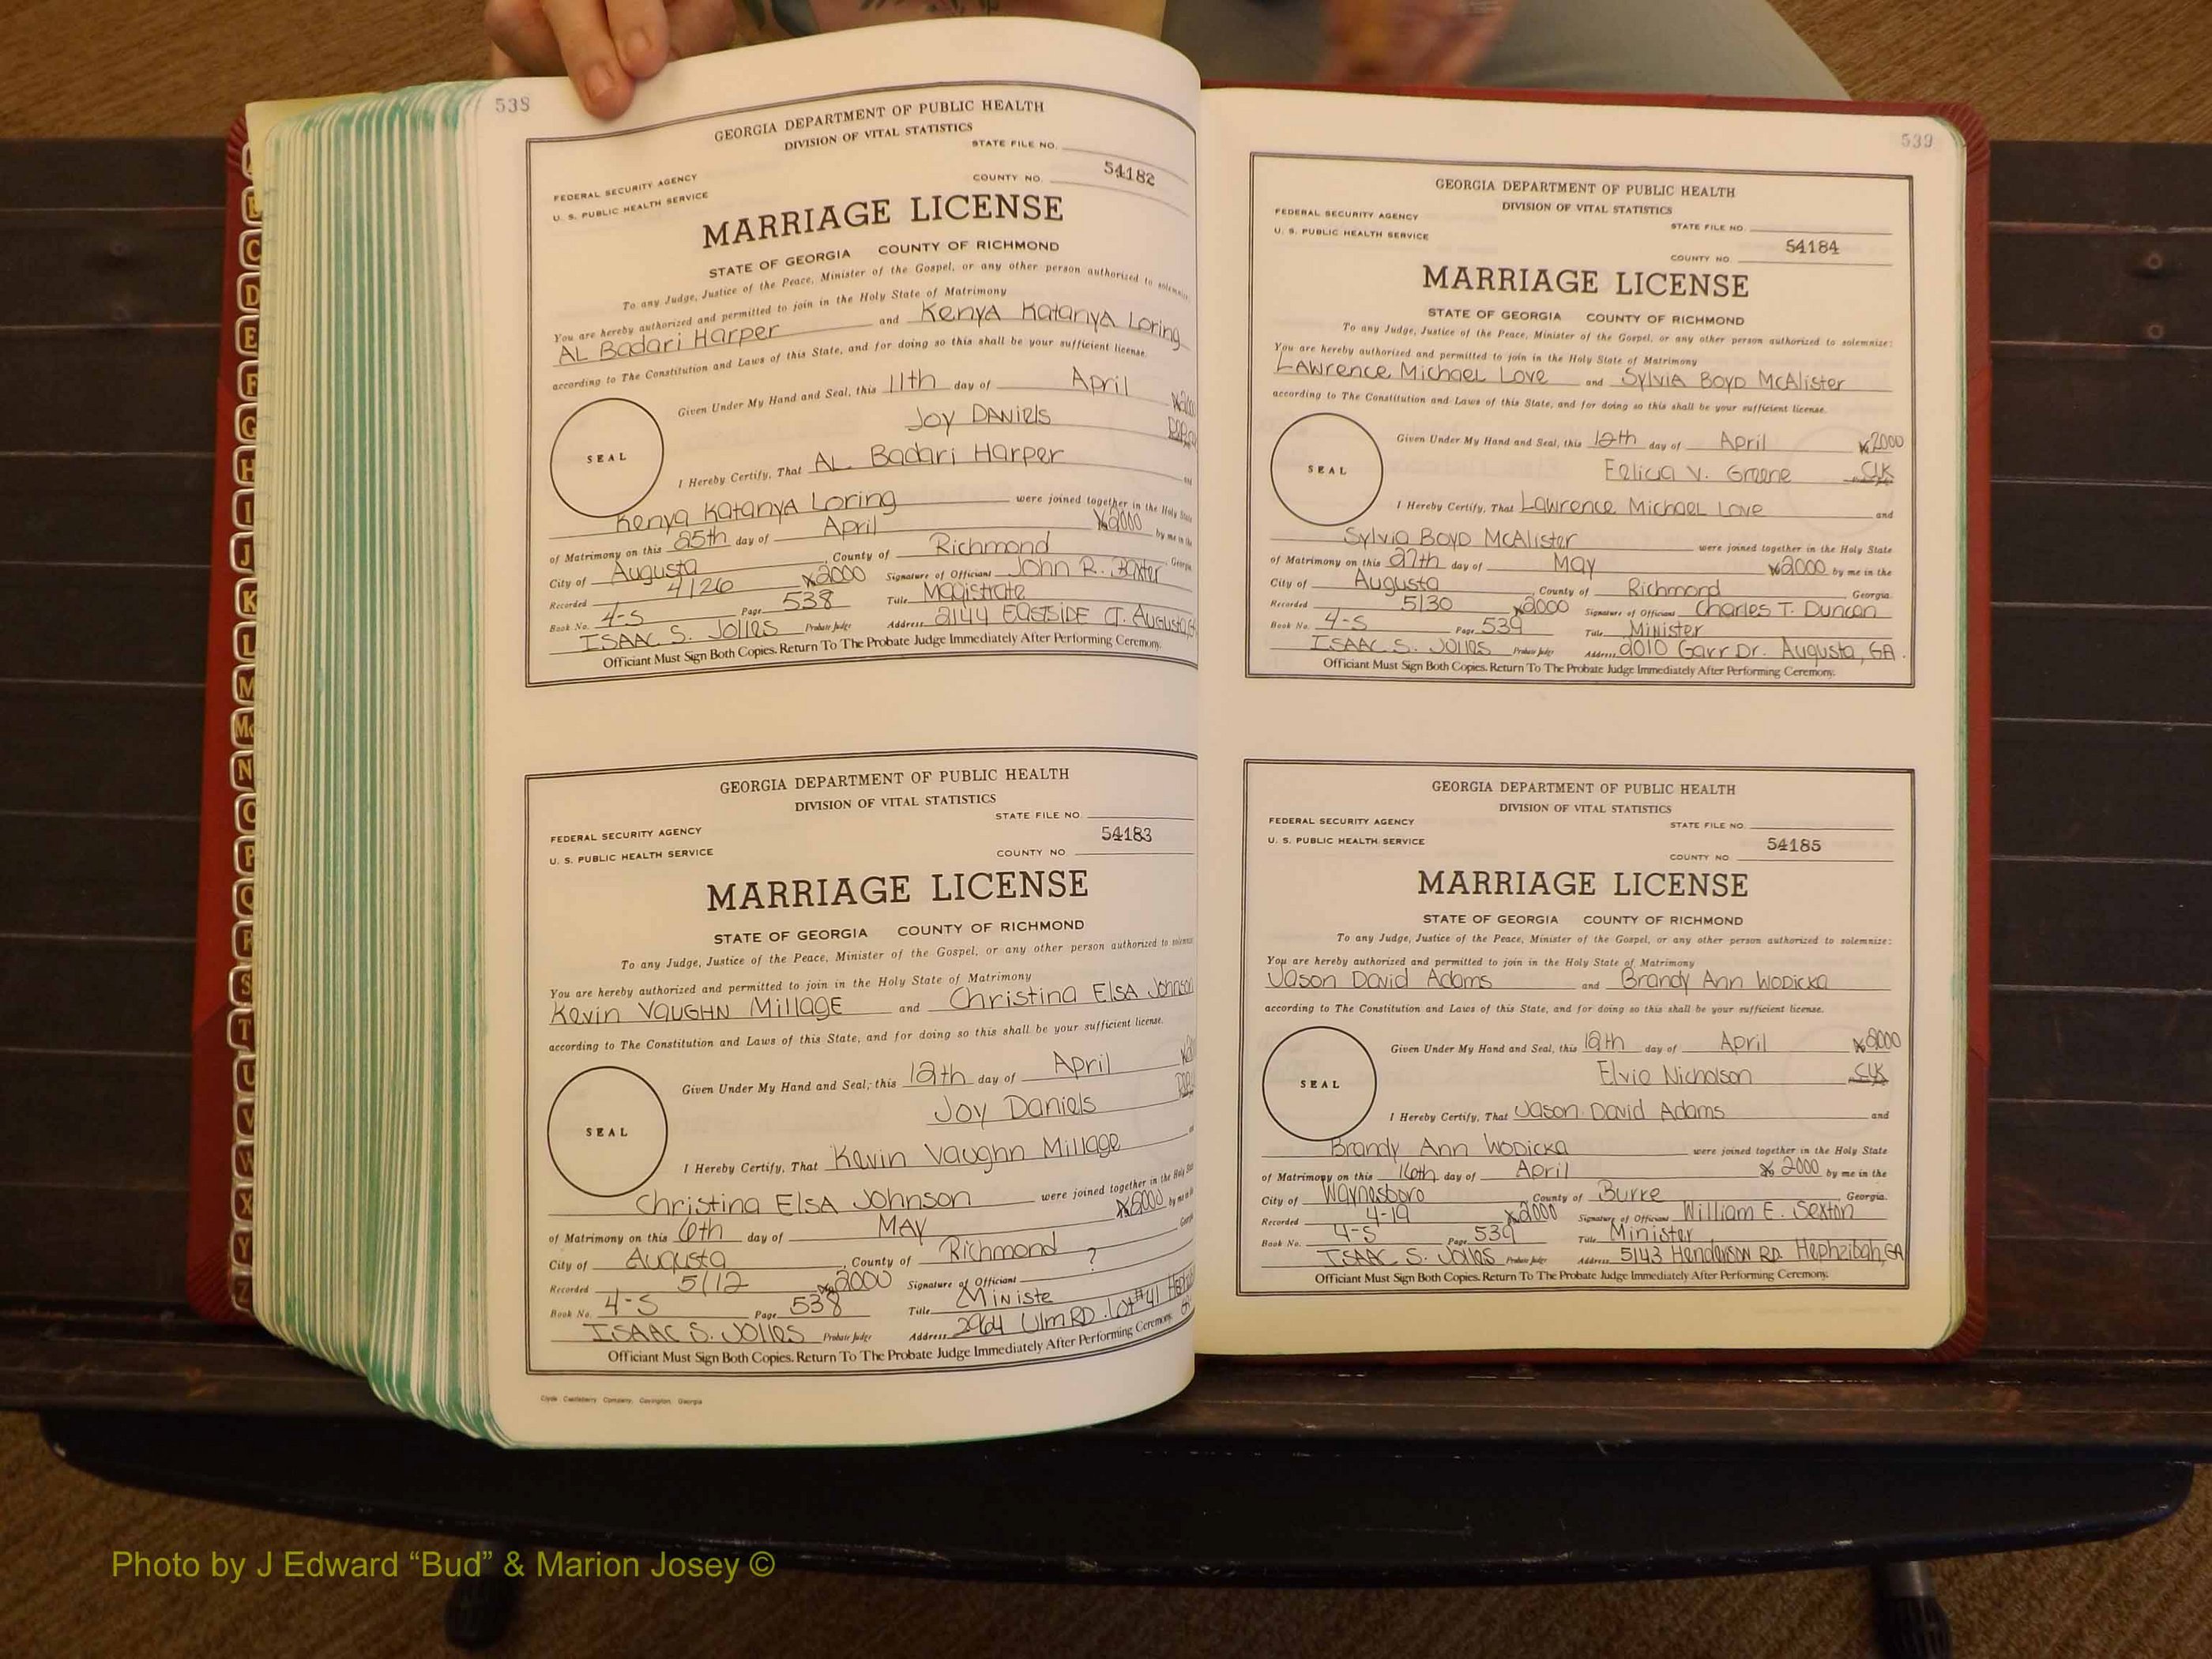 538
GEORGIA DEPARTMENT OF PUBLIC HEALTH
DIVISION OF VITAL STATISTICS
STATE FILE NO.
54182
COUNTY NO.
FEDERAL SECURITY AGENCY
U. S. PUBLIC HEALTH SERVICE
MARRIAGE LICENSE
STATE OF GEORGIA COUNTY OF RICHMOND
To any Judge, Justice of the Peace, Minister of the Gospel, or any other person authorized to solemnize:
You are hereby authorized and permitted to join in the Holy State of Matrimony
AL Badari Harper and Kenya Katanya Loring
according to The Constitution and Laws of this State, and for doing so this shall be your sufficient license.
Given Under My Hand and Seal, this 11th day of April
Joy DANiels
SEAL
I Hereby Certify, That AL Badari Harper
Kenya Katanya Loring were joined together in the Holy State
of Matrimony on this 25th day of April 2000 by me in the
City of Augusta, County of Richmond, Georgia.
Recorded 4/26 2000 Signature of Officiant John R. Baxter
Book No. 4-S Page 538 Title Magistrate
ISAAC S. Jolles Probate Judge Address 2144 EASTSIDE CT. Augusta,
Officiant Must Sign Both Copies. Return To The Probate Judge Immediately After Performing Ceremony.
GEORGIA DEPARTMENT OF PUBLIC HEALTH
DIVISION OF VITAL STATISTICS
STATE FILE NO.
54183
FEDERAL SECURITY AGENCY
U. S. PUBLIC HEALTH SERVICE
COUNTY NO
MARRIAGE LICENSE
STATE OF GEORGIA COUNTY OF RICHMOND
To any Judge, Justice of the Peace, Minister of the Gospel, or any other person authorized to
You are hereby authorized and permitted to join in the Holy State of Matrimony
Kevin VAUGHN Millage and Christina ElSA Johnson
according to The Constitution and Laws of this State, and for doing so this shall be your sufficient license.
Given Under My Hand and Seal, this 12th day of April
Joy Daniels
SEAL
I Hereby Certify, That Kevin Vaughn Millage
Christina ElSA Johnson were joined together in the Holy State
of Matrimony on this 6th day of MAY 2000 by me in the
City of Augusta, County of Richmond
Recorded 5/12 2000 Signature of Officiant ?
Book No. 4-S Page 538 Title Ministe
ISAAC S. Jolles Probate Judge Address 2964 Ulm RD. Lot #41
Officiant Must Sign Both Copies. Return To The Probate Judge Immediately After Performing Ceremony.
Clyde Castleberry Company, Covington, Georgia
539
GEORGIA DEPARTMENT OF PUBLIC HEALTH
DIVISION OF VITAL STATISTICS
FEDERAL SECURITY AGENCY
U. S. PUBLIC HEALTH SERVICE
STATE FILE NO.
54184
COUNTY NO.
MARRIAGE LICENSE
STATE OF GEORGIA COUNTY OF RICHMOND
To any Judge, Justice of the Peace, Minister of the Gospel, or any other person authorized to solemnize:
You are hereby authorized and permitted to join in the Holy State of Matrimony
LAwrence Michael Love and Sylvia Boyd McAlister
according to The Constitution and Laws of this State, and for doing so this shall be your sufficient license.
Given Under My Hand and Seal, this 12th day of April 2000
SEAL
Felicia V. Greene Clk
I Hereby Certify, That Lawrence Michael Love and
Sylvia Boyd McAlister were joined together in the Holy State
of Matrimony on this 27th day of May 2000 by me in the
City of Augusta, County of Richmond Georgia.
Recorded 5/30 2000 Signature of Officiant Charles T. Duncan
Book No. 4-S Page 539 Title Minister
ISAAC S. Jolles Probate Judge Address 2010 Garr Dr. Augusta, GA.
Officiant Must Sign Both Copies. Return To The Probate Judge Immediately After Performing Ceremony.
GEORGIA DEPARTMENT OF PUBLIC HEALTH
DIVISION OF VITAL STATISTICS
FEDERAL SECURITY AGENCY
STATE FILE NO.
U. S. PUBLIC HEALTH SERVICE
54185
COUNTY NO.
MARRIAGE LICENSE
STATE OF GEORGIA COUNTY OF RICHMOND
To any Judge, Justice of the Peace, Minister of the Gospel, or any other person authorized to solemnize:
You are hereby authorized and permitted to join in the Holy State of Matrimony
Jason David Adams and Brandy Ann Wodicka
according to The Constitution and Laws of this State, and for doing so this shall be your sufficient license.
Given Under My Hand and Seal, this 12th day of April 2000
Elvie Nicholson Clk
SEAL
I Hereby Certify, That Jason David Adams and
Brandy Ann Wodicka were joined together in the Holy State
of Matrimony on this 16th day of April 2000 by me in the
City of Waynesboro, County of Burke, Georgia.
Recorded 4-19 2000 Signature of Officiant William E. Sexton
Book No. 4-S Page 539 Title Minister
ISAAC S. Jolles Probate Judge Address 5143 Henderson RD. Hephzibah, GA
Officiant Must Sign Both Copies. Return To The Probate Judge Immediately After Performing Ceremony.
C
D
E
F
G
H
I
J
K
L
M
Mc
N
O
P
Q
R
S
T
U
V
W
X
Y
Z
Photo by J Edward “Bud” & Marion Josey ©